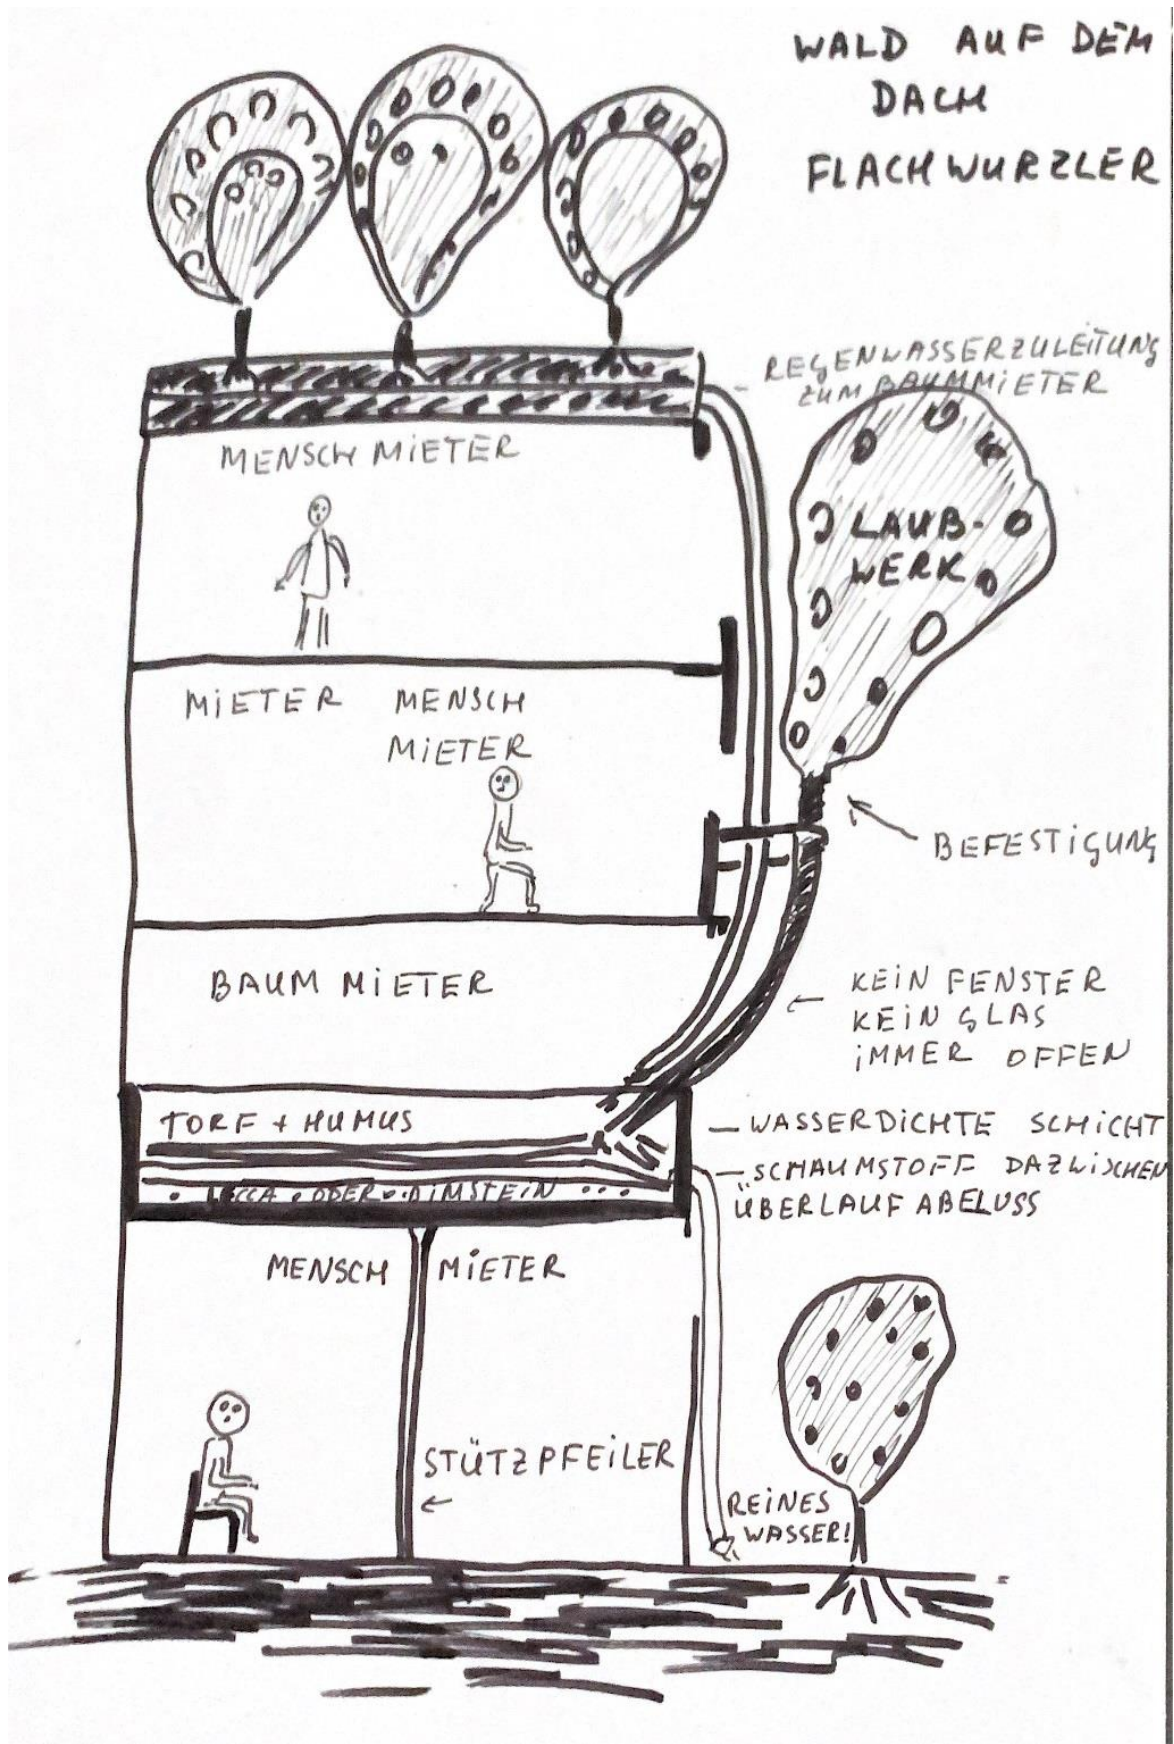 WALD AUF DEM
DACH
FLACHWURZLER
REGENWASSERZULEITUNG
ZUM BAUMMIETER
MENSCH MIETER
LAUB-
WERK
MIETER MENSCH
MIETER
BEFESTIGUNG
BAUM MIETER
KEIN FENSTER
KEIN GLAS
IMMER OFFEN
TORF + HUMUS
WASSERDICHTE SCHICHT
SCHAUMSTOFF DAZWISCHEN
ÜBERLAUF ABFLUSS
ODER BIMSTEIN
MENSCH MIETER
STÜTZPFEILER
REINES
WASSER!